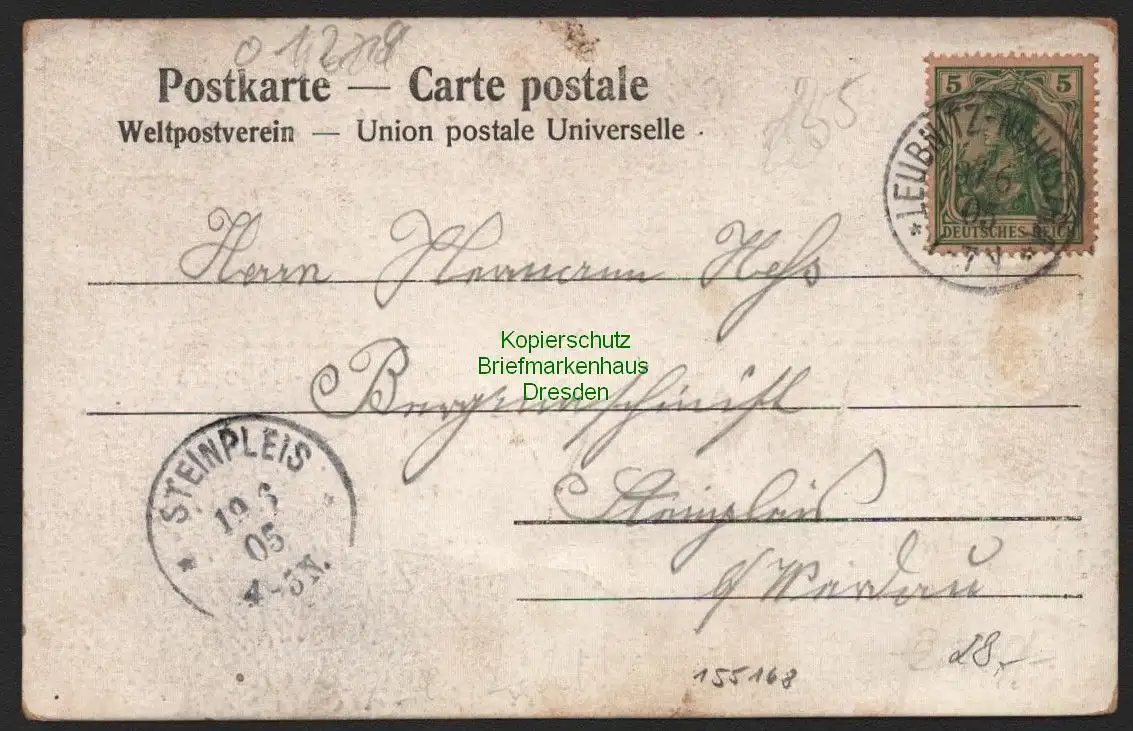 01279
Postkarte — Carte postale
Weltpostverein — Union postale Universelle
255
5 5
DEUTSCHES REICH
LEUBNITZ-
6
05
7 V
Herrn Hermann Hess
Kopierschutz
Briefmarkenhaus
Dresden
STEINPLEIS
19 6
05
4-5N.
Steinpleis
b/Werdau
28,-
155168